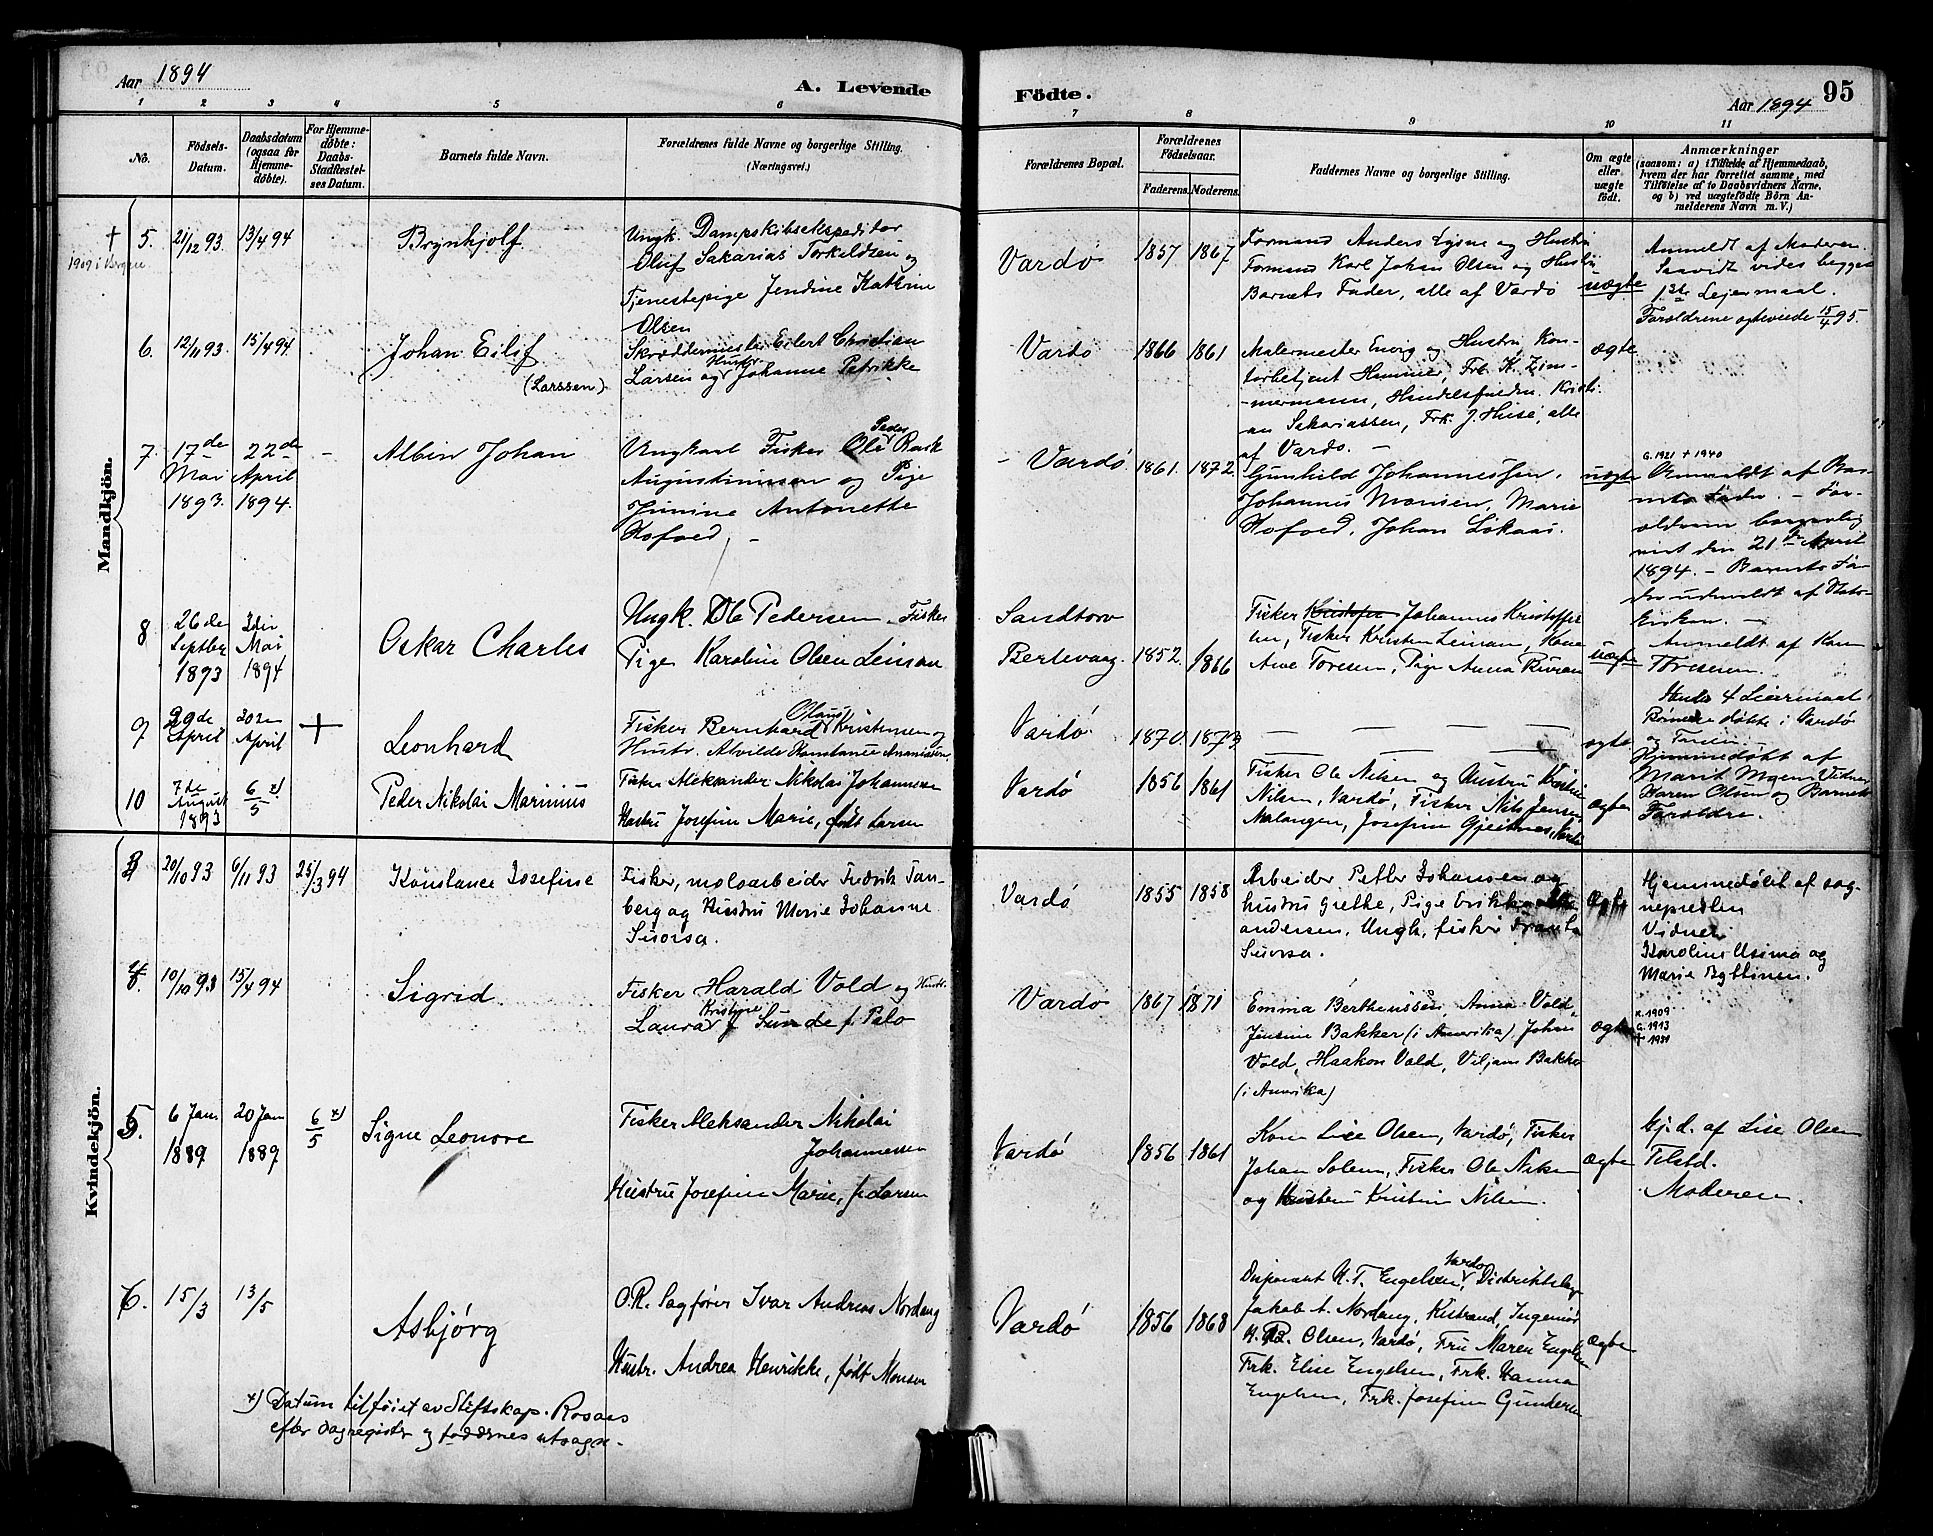 Aar 1894
A. Levende
Födte.
Aar 1894
95
1 2 3 4 5 6 7 8 9 10 11
No.
Födsels-
Datum.
Daabsdatum
(ogsaa for
Hjemme-
döbte).
For Hjemme-
döbte:
Daabs-
Stadfæstel-
ses Datum.
Barnets fulde Navn.
Forældrenes fulde Navne og borgerlige Stilling.
(Næringsvei.)
Forældrenes Bopæl.
Forældrenes
Födselsaar.
Faderens. Moderens.
Faddernes Navne og borgerlige Stilling.
Om ægte
eller
uægte
födt.
Anmærkninger
(saasom: a) i Tilfælde af Hjemmedaab,
hvem der har forrettet samme, med
Tilföielse af to Daabsvidners Navne.
og b) ved uægtefödte Börn An-
melderens Navn m. V.)
Mandkjön.
†
1909 i Bergen
5.
21/12 93.
13/4 94
Brynhjolf
Ungk. Dampskibsekspeditor
Oluf Sakarias Torkeldsen og
Tjenestepige Jendine Kathrine
Olsen
Vardø
1857
1867
Formand Anders Lysne og Hustru
Formand Karl Johan Olsen og Hustru
Barnets Fader, alle af Vardø
uægte
Anmeldt af Moderen.
Saavidt vides begges
1ste Lejermaal.
Forældrene ægteviede 15/4 95.
6.
12/11 93.
15/4 94.
Johan Eilif
(Larssen)
Skræddermester Eilert Christian
Larsen og Hustr. Johanne Petrikke
Vardø
1866
1861
Malermester Enorg og Hustru Kon-
torbetjent Hammer, Frk. K. Zim-
mermann, Handelsfuldm. Kristi-
an Sakariassen, Frk. J. Huse, alle
af Vardø. –
ægte
7.
17de
Mai
1893.
22de
April
1894.
–
Albin Johan
Ungkarl Fisker Ole Peder Rask
Augustinussen og Pige
Jinine Antonette
Hofved. –
– Vardø
1861.
1872.
Gunhild Johannessen.
Johannes Monsen, Marie
Hofved, Johan Løkaas.
uægte
G. 1921 † 1940
Anmeldt af Bar-
nets Fader. – For-
ældrene borgerlig
viet den 21de April
1894. – Barnets Fa-
der udmeldt af Stats-
kirken. –
8
26de
Septber
1893
3die
Mai
1894
Oskar Charles
Ungk. Ole Pedersen, Fisker
Pige Karoline Olsen Leinan
Sandtorv
Berlevaag.
1852.
1866
Fisker Kristofer Johannes Kristoffer
sen, Fisker Kristen Leinan, Kone
Ane Toresen, Pige Anna
uægte
Anmeldt af Kone
Thoresen.
4 Leiermaal
Børnene døbte i Vardø
og
9
29de
April
30te
April
+
Leonhard
Fisker Bernhard Olaus Kristensen og
Hustr. Alvilde Konstance Ananiassen
Vardø
1870.
1873
— — — —
ægte
Hjemmedøbt af
Marit Moen, Vidner
Karen Olsen og Barnets
Forældre.
10
7de
August
1893
6/5 x)
Peder Nikolai Marinius
Fisker Aleksander Nikolai Johannessen
Hustru Josefine Marie, født Larsen
Vardø
1856
1861
Fisker Ole Nilsen og Hustru Kristine
Nilsen, Vardø, Fisker Nils Jensen
Malangen, Josefine Gjeitnes, Vardø
ægte
Kvindekjön.
3
20/10 93
6/11 93
25/3 94
Konstance Josefine
Fisker, moloarbeider Fredrik Tan-
berg og Hustru Marie Johanne
Suorsa.
Vardø
1855
1858
Arbeider Petter Johansen og
hustru Grethe, Pige Erikka
Andersen, Ungk. fisker Frants
Suorsa.
Ægte
Hjemmedøbt af sog-
nepresten
Vidner:
Karoline Usima og
Marie Byttinen.
4.
10/10 93
15/4 94
Sigrid.
Fisker Harald Vold og Hustr.
Laura Kristine J Sunde f. Palo
Vardø
1867
1871
Emma Berthenssen, Anna Vold,
Jensine Bakker (i Amerika). Johan
Vold, Haakon Vold, Viljam Bakke
(i Amerika)
ægte
K. 1909
G. 1913
† 1951
5.
6 Jan.
1889
20 Jan
1889
6/5 x)
Signe Leonore
Fisker Aleksander Nikolai
Johannessen
Hustru Josefine Marie, f. Larsen
Vardø
1856
1861
Kone Lise Olsen, Vardø, Fisker
Johan Solem, Fisker Ole Nilsen
og Hustru Kristine Nilsen.
Ægte
Hj.d. af Lise Olsen
Tilsted.
Moderen.
6.
15/3
13/5
Asbjørg
O.R. Sagfører Ivar Andreas Nordang
Hustr. Andrea Henrikke, født Monsen
Vardø
1856
1868
Disponent H. T. Engelsen, Vardø, Distriktslæge
Jakob A. Nordang, Kistrand, Ingeniør
H. B. Olsen, Vardø, Fru Maren Engelsen
Frk. Elise Engelsen, Frk. Hanna
Engelsen, Frk. Josefine Gundersen
Ægte
x) Datum tilføiet av Stiftskap. Rosaas
efter dagregister og faddernes utsagn.